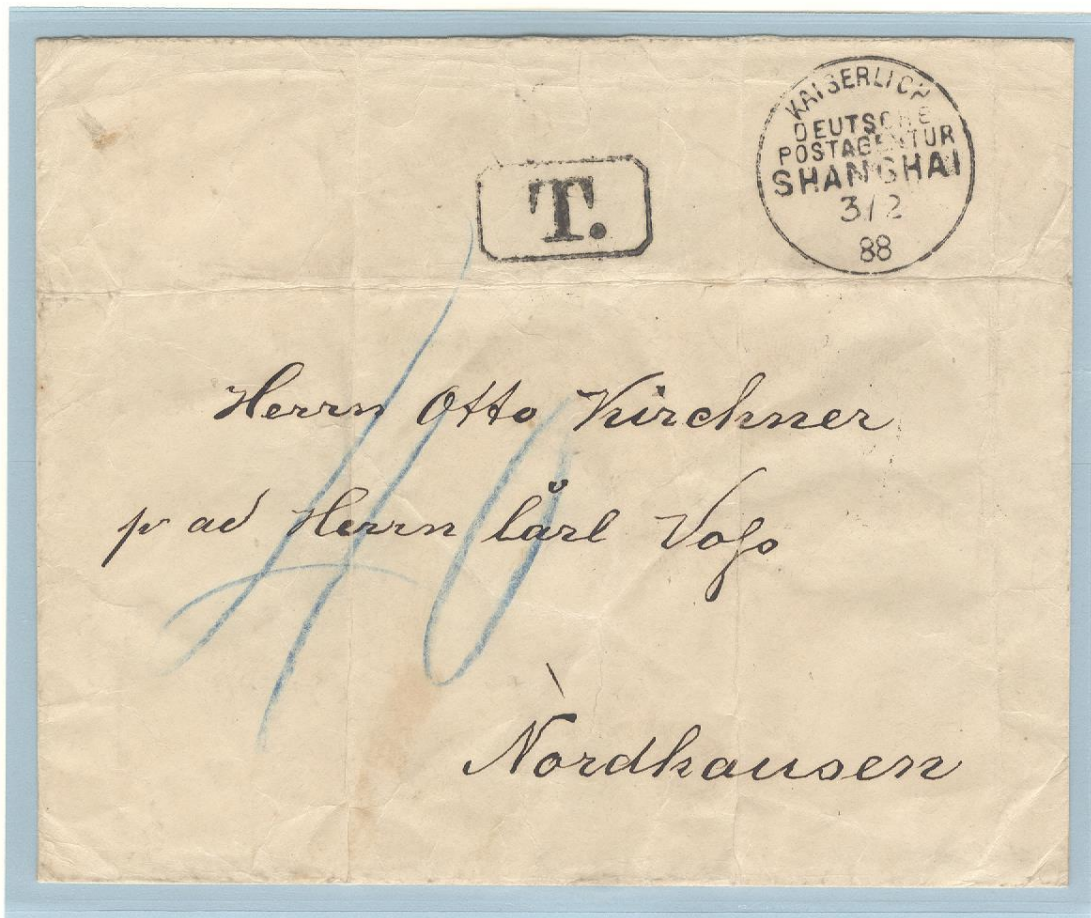 KAISERLICH
DEUTSCHE
POSTAGENTUR
SHANGHAI
3/2
88
T.
40
Herrn Otto Kirchner
p ad Herrn Carl
Nordhausen